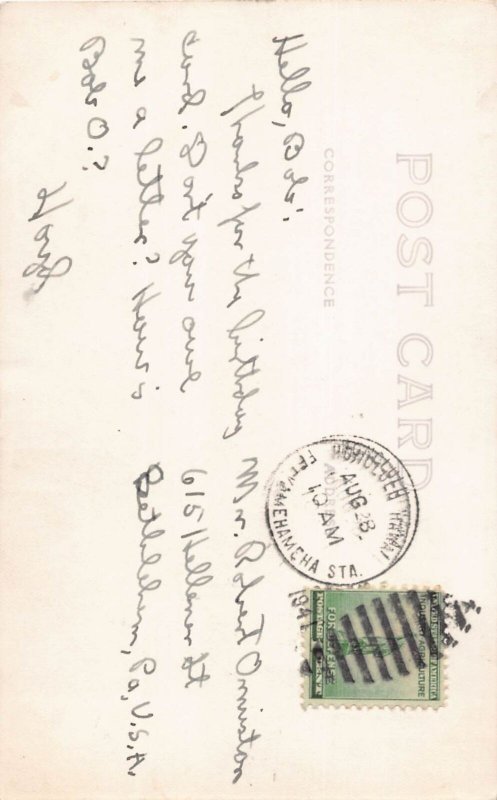 POST CARD
CORRESPONDENCE
Hello, Bob:
Thanks for the birthday
card. Don't you owe
me a letter? How's
Bob O.?
Mr. Robert Ormiston
615 Hellener St
Bethlehem, Pa, U.S.A.
HONOLULU HAWAII
AUG 28
10 AM
1941
KAMEHAMEHA STA.
UNITED STATES OF AMERICA
INDUSTRY AGRICULTURE
FOR DEFENSE
POSTAGE 1 CENT